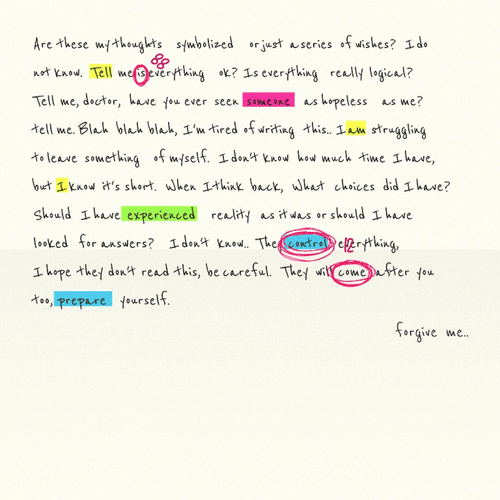 Are these my thoughts symbolized or just a series of wishes? I do
not know. Tell me is everything ok? Is everything really logical?
Tell me, doctor, have you ever seen someone as hopeless as me?
tell me. Blah blah blah, I'm tired of writing this.. I am struggling
to leave something of myself. I don't know how much time I have,
but I know it's short. When I think back, What choices did I have?
Should I have experienced reality as it was or should I have
looked for answers? I don't know.. They control everything,
I hope they don't read this, be careful. They will come after you
too, prepare yourself.
forgive me..